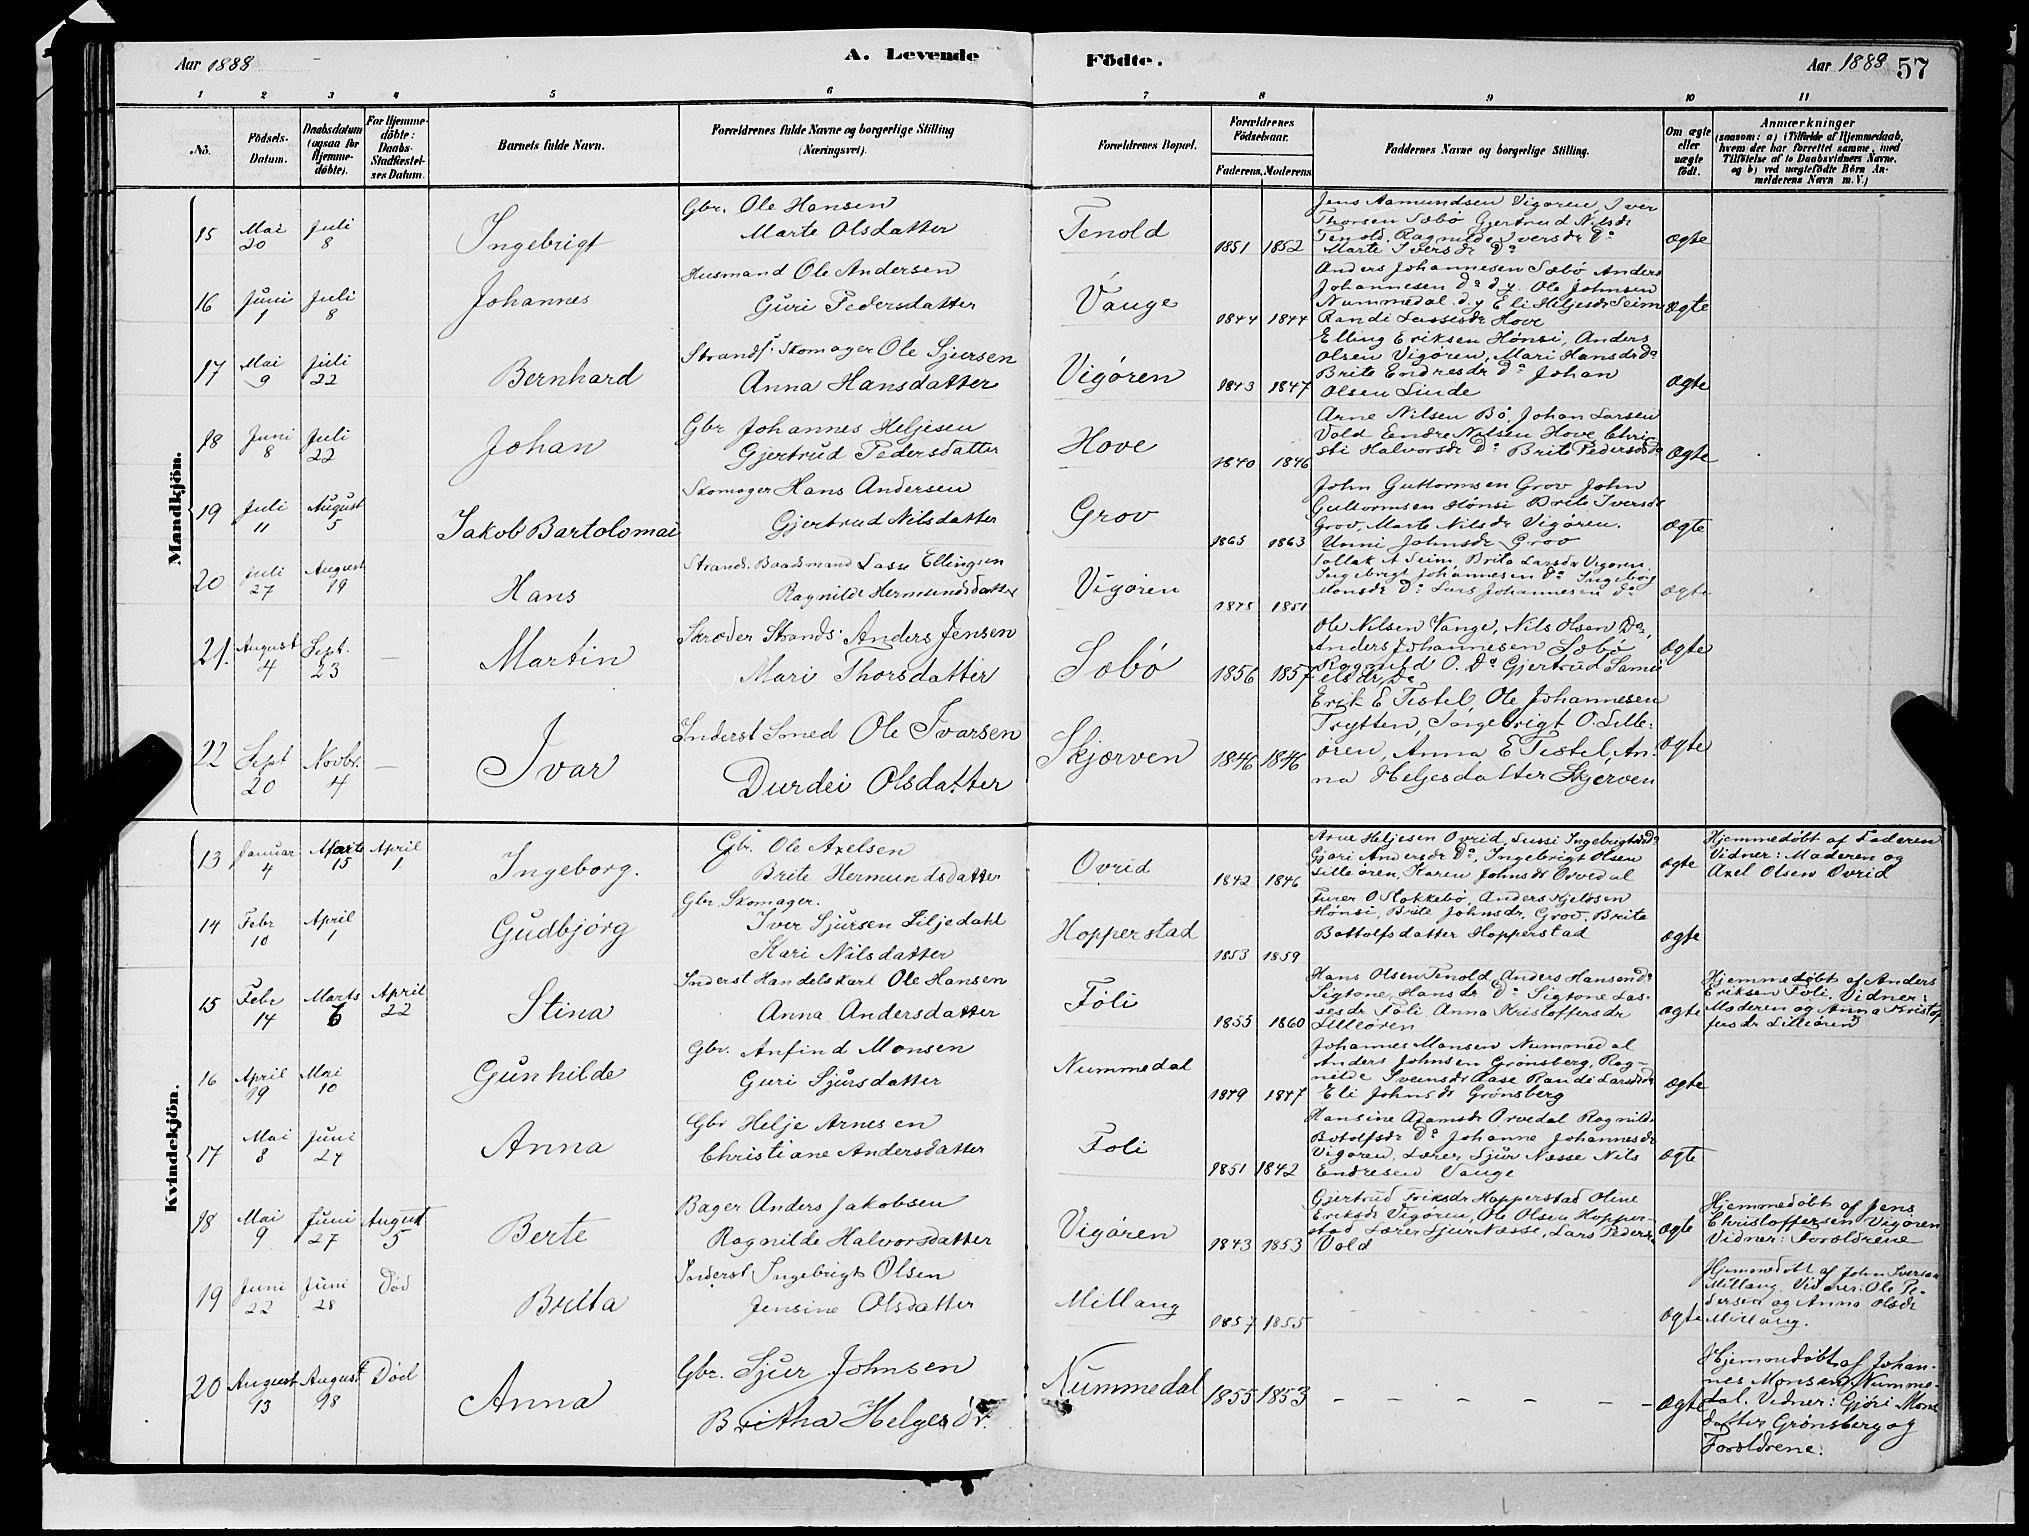 Aar 1888
A. Levende
Födte.
Aar 1888 57
1 2 3 4 5 6 7 8 9 10 11
No.
Födsels-
Datum.
Daabsdatum
(ogsaa for
Hjemme-
döbte).
For Hjemme-
döbte:
Daabs-
Stadfæstel-
ses Datum.
Barnets fulde Navn.
Forældrenes fulde Navne og borgerlige Stilling
(Næringsvei).
Forældrenes Bopæl.
Forældrenes
Födselsaar.
Faderens. Moderens.
Faddernes Navne og borgerlige Stilling.
Om ægte
eller
uægte
födt.
Anmærkninger
(saasom: a) i Tilfælde af Hjemmedaab,
hvem der har forrettet samme, med
Tilföielse af to Daabsvidners Navne,
og b) ved uægtefödte Börn An-
melderens Navn m. V.)
Mandkjön.
15 Mai 20 Juli 8 Ingebrigt
Gbr. Ole Hansen
Marte Olsdatter
Tenold 1851 1852
Jens Aamundsen Vigøren Iver
Thorsen Sæbö Gjertrud Nilsdr
Tenold, Ragnilde Iversdr Do
Marte Iversdr Do
ægte
16 Juni 1 Juli 8 Johannes
Husmand Ole Andersen
Guri Pedersdatter
Vange 1844 1844
Anders Johannesen Sæbö Anders
Johannesen Do d.y. Ole Johnsen
Nummedal d.y Eli Heljesdr Seim
Randi Lassesdr Hove
ægte
17 Mai 9 Juli 22 Bernhard
Strands. Skomager Ole Sjursen
Anna Hansdatter
Vigören 1843 1847
Elling Eriksen Hönsi, Anders
Olsen Vigören, Mari Hansdr Do
Brite Endresdr Do Johan
Olsen Linde
ægte
18 Juni 8 Juli 22 Johan
Gbr Johannes Heljesen
Gjertrud Pedersdatter
Hove 1840 1846
Arne Nilsen Bö, Johan Larsen
Vold Endre Nilsen Hove Chri-
sti Halvorsdr Do Brite Pedersdr Do
ægte
19 Juli 11 August 5 Jakob Bartolomai
Skomager Hans Andersen
Gjertrud Nilsdatter
Grov 1865 1863
John Guttormsen Grov John
Guttormsen Hönsi Brite Iversdr
Grov, Marte Nilsdr Vigören.
Unni Johnsdr Grov
ægte
20 Juli 27 August 19 Hans
Strands. Baadsmand Lasse Ellingsen
Ragnilde Hermundsdatter
Vigören 1845 1851
Tollak A Seim, Brita Larsdr Vigoren
Ingebrigt Johannesen Do Ingeborg
Monsdr Do Lars Johannesen Do
ægte
21. August 4 Sept. 23 — Martin
Skræder Strands: Anders Jensen
Mari Thorsdatter
Sæbö 1856 1857
Ole Nilsen Vange, Nils Olsen Do,
Anders Johannesen Sæbö
Ragnild O. Do Gjertrud Samu
elsdr Do
ægte
22 Sept 20 Novbr. 4 — Ivar
Inderst Smed Ole Ivarsen
Durdei Olsdatter
Skjærven 1846 1846
Erik E Tistel, Ole Johannesen
Trytten, Ingebrigt O. Lille-
ören, Anna E Tistel, An-
na Heljesdatter Skjerven
ægte
Kvindekjön.
13 Januar 4 Marts 15 April 1 Ingeborg.
Gbr. Ole Axelsen
Brite Hermundsdatter
Ovrid 1842 1846
Arne Heljesen Ovrid, Sussi Ingebrigtsdr Do
Gjøri Andersdr Do, Ingebrigt Olsen
Lilleören, Karen Johnsdr Orvedal
ægte
Hjemmedöbt af Faderen
Vidner: Moderen og
Axel Olsen Ovrid
14 Febr 10 April 1 Gudbjörg
Gbr. Skomager.
Iver Sjursen Liljedahl
Kari Nilsdatter
Hopperstad 1853 1859
Furer O Stokkebö, Anders Kjeldsen
Hönsi, Brite Johnsdr, Grov. Brite
Bottolfsdatter Hopperstad
ægte
15 Febr 14 Marts 6 April 22 Stina
Inderst Handelskarl Ole Hansen
Anna Andersdatter
Föli 1855 1860
Hans Olsen Tenold, Anders Hansen Do
Sigtone, Hansdr Do Sigtone Las-
sesdr Föli Anna Kristoffersdr
Lilleören
ægte
Hjemmedöbt af Anders
Eriksen Föli. Vidner:
Moderen og Anna Kristof-
fersdr Lilleören
16 April 19 Mai 10 Gunhilde
Gbr. Anfind Monsen
Guri Sjursdatter
Nummedal 1849 1847
Johannes Monsen Nummedal
Anders Johnsen Grönsberg, Rag-
nilde Svensdr Aase Randi Larsdr Do
Eli Johnsdr Grönsberg
ægte
17 Mai 8 Juni 24 Anna
Gbr Helje Arnesen
Christiane Andersdatter
Föli 1851 1842
Hansine Adamsdr Orvedal Ragnild
Botolfsdr Do Johanne Johannesdr
Vigoren, Lærer Sjur Næsse Nils
Endresen Vange
ægte
18 Mai 9 Juni 27 August 5 Berte
Bager Anders Jakobsen
Ragnilde Halvorsdatter
Vigören 1843 1853
Gjertrud Eriksdr Hopperstad Oline
Eriksdr Vigören, Ole Olsen Hopper-
stad Lærer Sjur Næsse, Lars Peders-
Vold
ægte
Hjemmedöbt af Jens
Christoffersen Vigören
Vidner: Forældrene
19 Juni 22 Juni 28 Död Brita
Inderst Ingebrigt Olsen
Jensine Olsdatter
Millang 1857 1855
ægte
Hjemmedöbt af John Iversen
Millang Vidner: Ole Pe-
dersen og Anna Olsdr
Millang.
20 August 13 August 18 Död Anna
Gbr. Sjur Johnsen
Britha Helgesdr.
Nummedal 1855 1853 — — — — — —
ægte
Hjemmedöbt af Johan-
nes Monsen Numme-
dal. Vidner: Gjöri Mons
datter Grönsberg og
Forældrene.